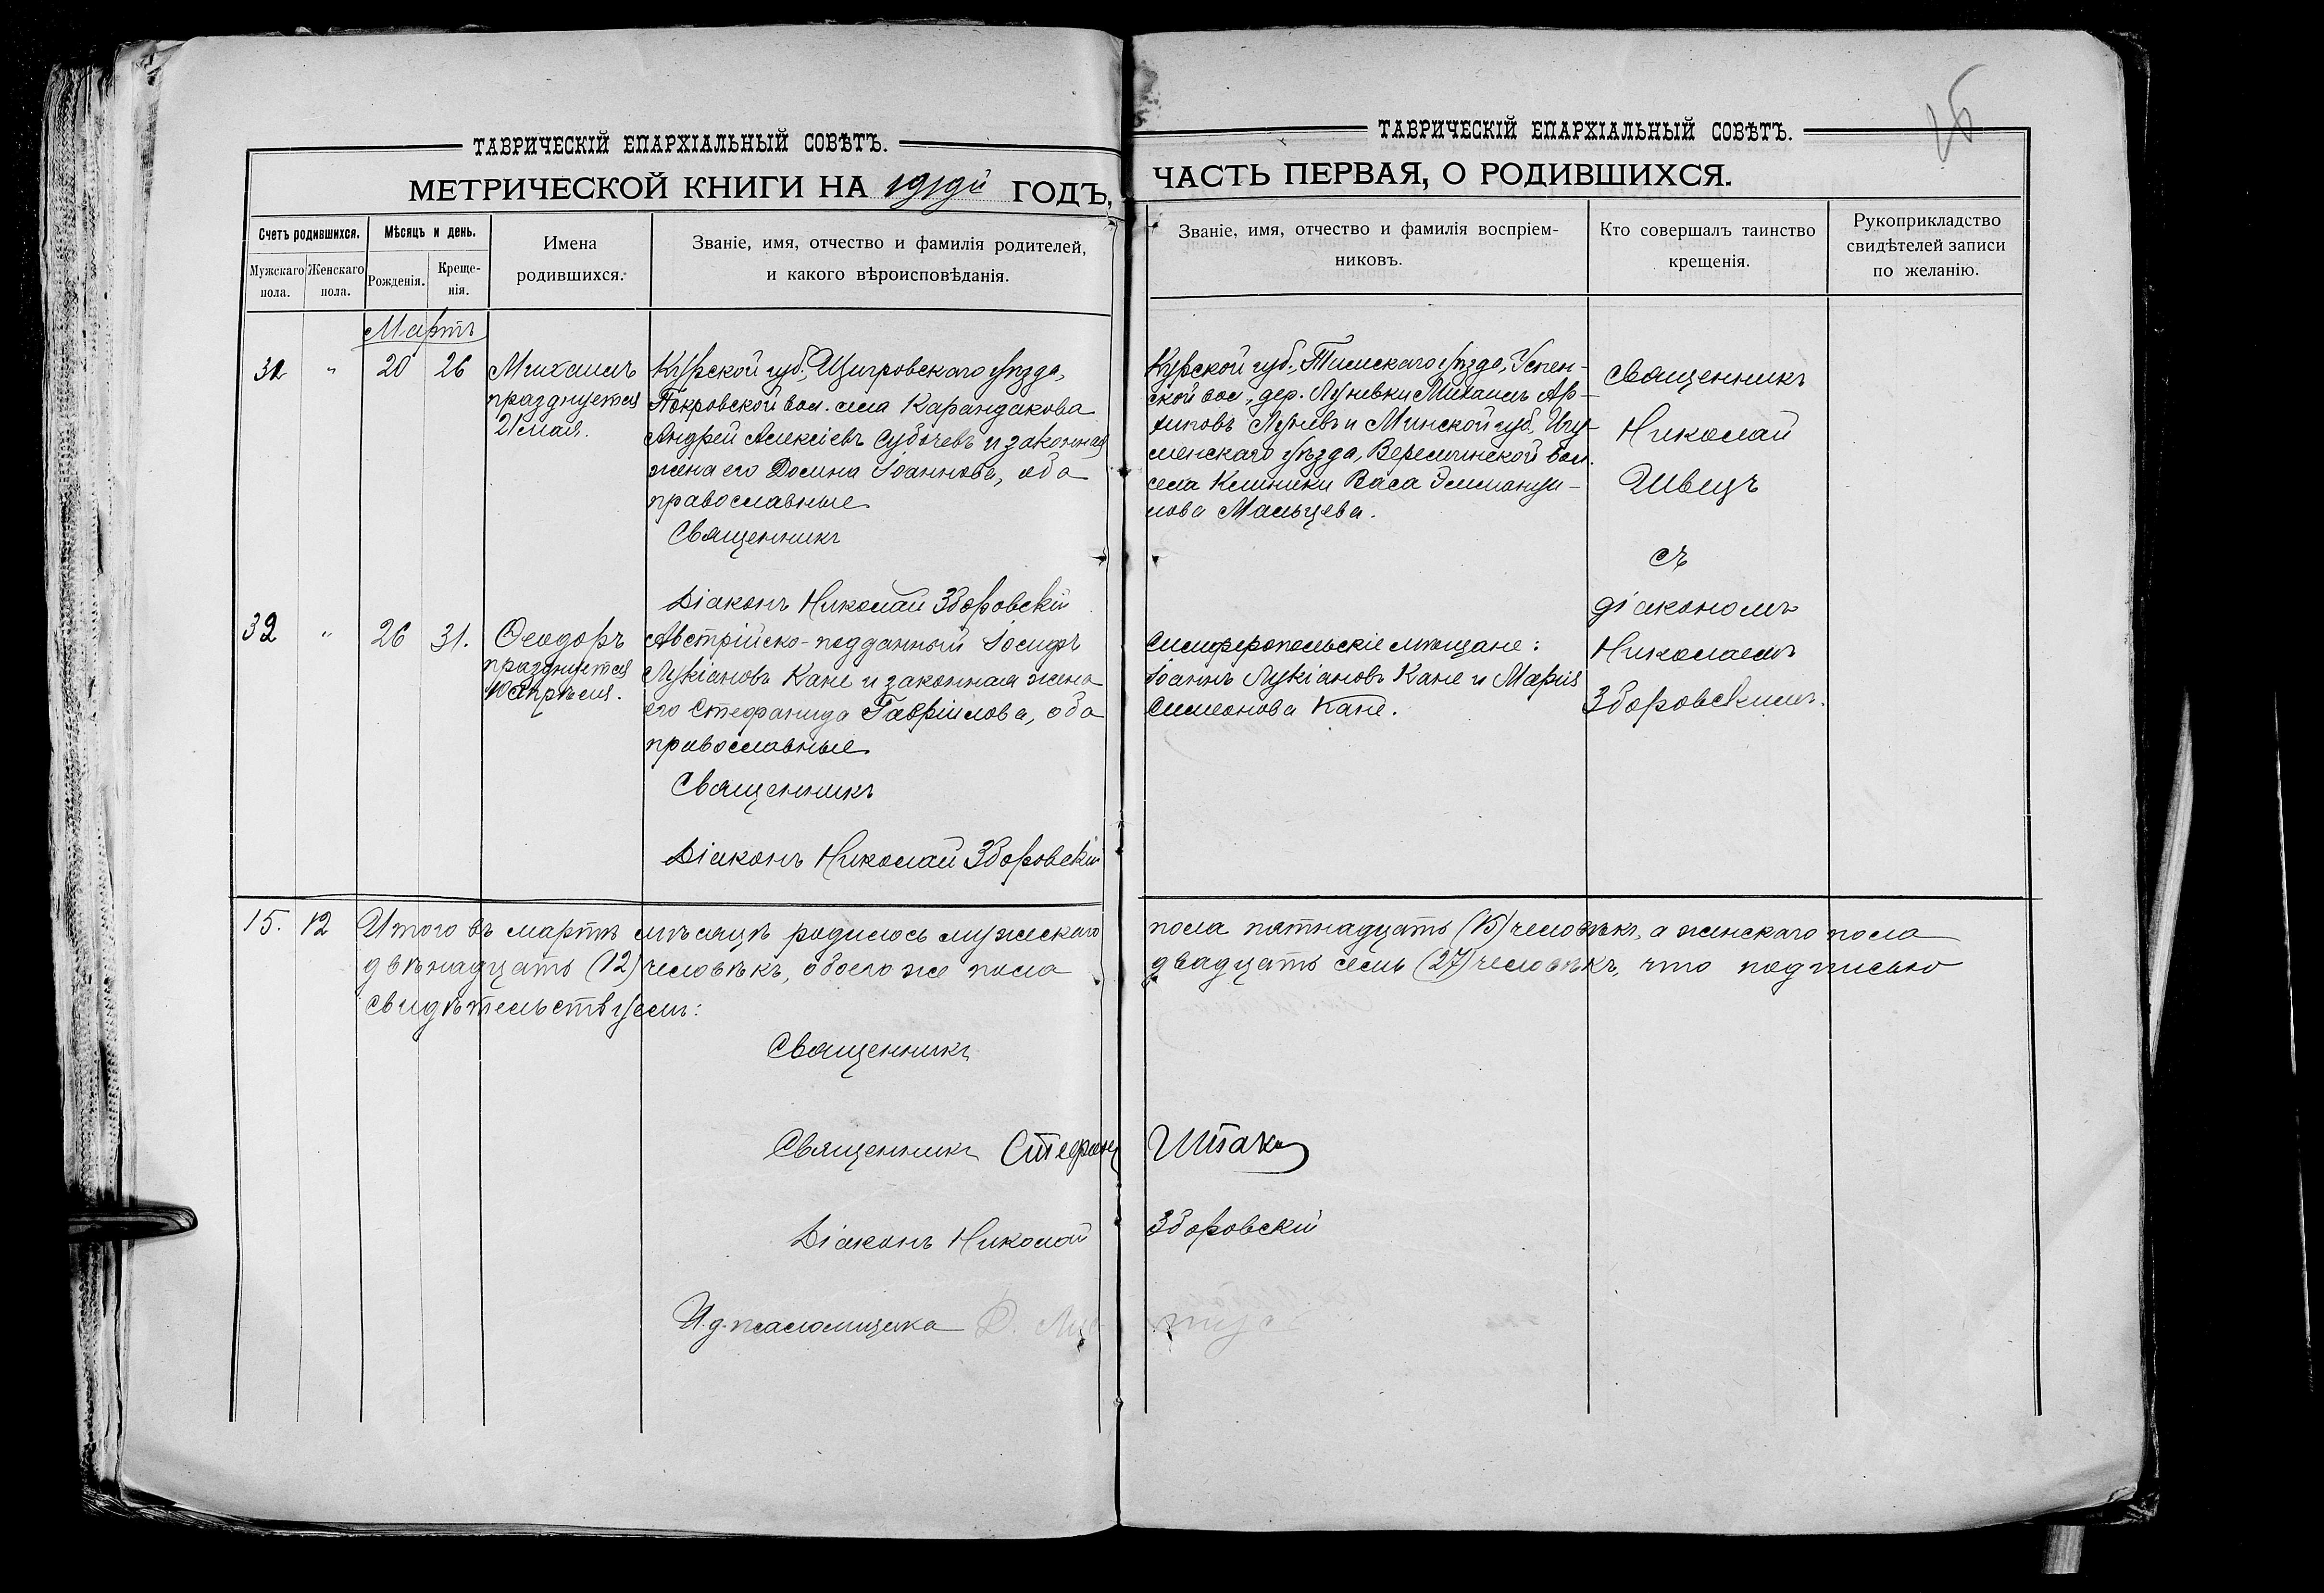 ТАВРИЧЕСКІЙ ЕПАРХІАЛЬНЫЙ СОВѢТЪ.
МЕТРИЧЕСКОЙ КНИГИ НА 1919й ГОДЪ,
Счетъ родившихся.
Мужскаго пола.
Женскаго пола.
Мѣсяцъ и день.
Рожденія.
Креще-
нія.
Имена
родившихся.
Званіе, имя, отчество и фамилія родителей,
и какого вѣроисповѣданія.
Мартъ
31 " 20 26 Михаилъ
празднуется
21 мая.
Курской губ., Щигровскаго уѣзда,
Покровской вол. села Карандакова
Андрей Алексіевъ Субочевъ и законная
жена его Домна Іоаннова, оба
православные
Священникъ
Діаконъ Николай Зборовскій
32 " 26 31. Ѳеодоръ
празднуется
Апрѣля.
Австрійско-подданный Іосифъ
Лукіановъ Кане и законная жена
его Стефанида Гавріилова, оба
православные
Священникъ
Діаконъ Николай Зборовскій
15. 12 Итого въ мартѣ мѣсяцѣ родилось мужескаго
двѣнадцать (12) человѣкъ, обоего же пола
свидѣтельствуемъ:
Священникъ
Священникъ Стефанъ
Діаконъ Николай
И.д. псаломщика
ТАВРИЧЕСКІЙ ЕПАРХІАЛЬНЫЙ СОВѢТЪ.
ЧАСТЬ ПЕРВАЯ, О РОДИВШИХСЯ.
Званіе, имя, отчество и фамилія воспріем-
никовъ.
Кто совершалъ таинство
крещенія.
Рукоприкладство
свидѣтелей записи
по желанію.
Курской губ., Тимскаго уѣзда, Успен-
ской вол., дер. Лунивки Михаилъ Ар-
хиповъ Луневъ и Минской губ. Игу-
менскаго уѣзда, вол.
села Клинники Васа
лова Мальцева.
Священникъ
Николай
Швецъ
съ
діакономъ
Николаемъ
Зборовскимъ.
Симферопольскіе мѣщане:
Іоаннъ Лукіановъ Кане и Марія
Симеонова Кане.
пола пятнадцать (15) человѣкъ, а женскаго пола
двадцать семь (27) человѣкъ, что подписью
Штака
Зборовскій